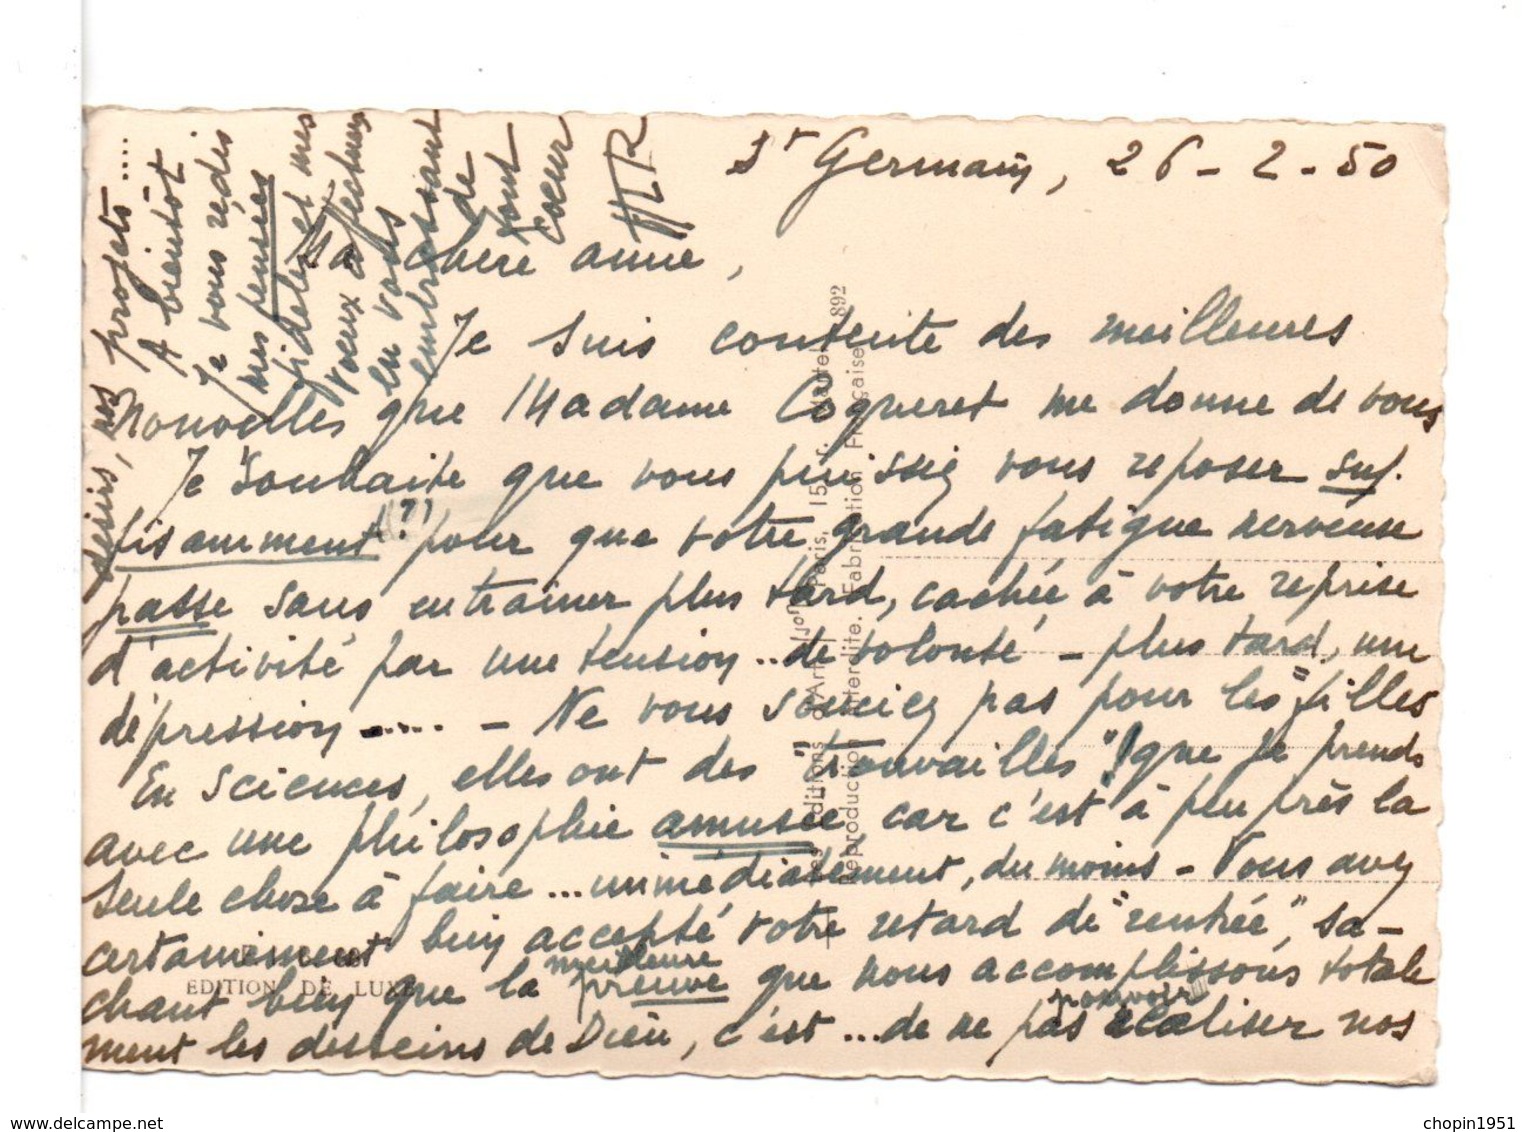 St Germain, 26 - 2 - 50
Ma chère Anne,
Je suis contente des meilleures
nouvelles que Madame Coqueret me donne de vous
Je souhaite que vous puissiez vous reposer suf-
fisamment (?) pour que votre grande fatigue nerveuse
passe sans entraîner plus tard, cachée à votre reprise
d'activité par une tension .. de volonté - plus tard, une
dépression ...... - Ne vous souciez pas pour les "filles
En sciences, elles ont des "trouvailles"! que je prends
avec une philosophie amusée car c'est à peu près la
seule chose à faire ... immédiatement, du moins - Vous avez
certainement bien accepté votre retard de "rentrée", sa-
chant bien que la meilleure preuve que nous accomplissons totale
ment les desseins de Dieu, c'est ... de ne pas pouvoir réaliser nos
désirs, nos projets ....
A bientôt
Je vous redis
mes pensées
fidèles et mes
voeux affectueux
en vous
embrassant
de
tout
coeur
Les Editions d'Art Yvon, Paris, 15, r. Martel 892
Reproduction Interdite. Fabrication Française
EDITION DE LUXE
delcampe.net
chopin1951